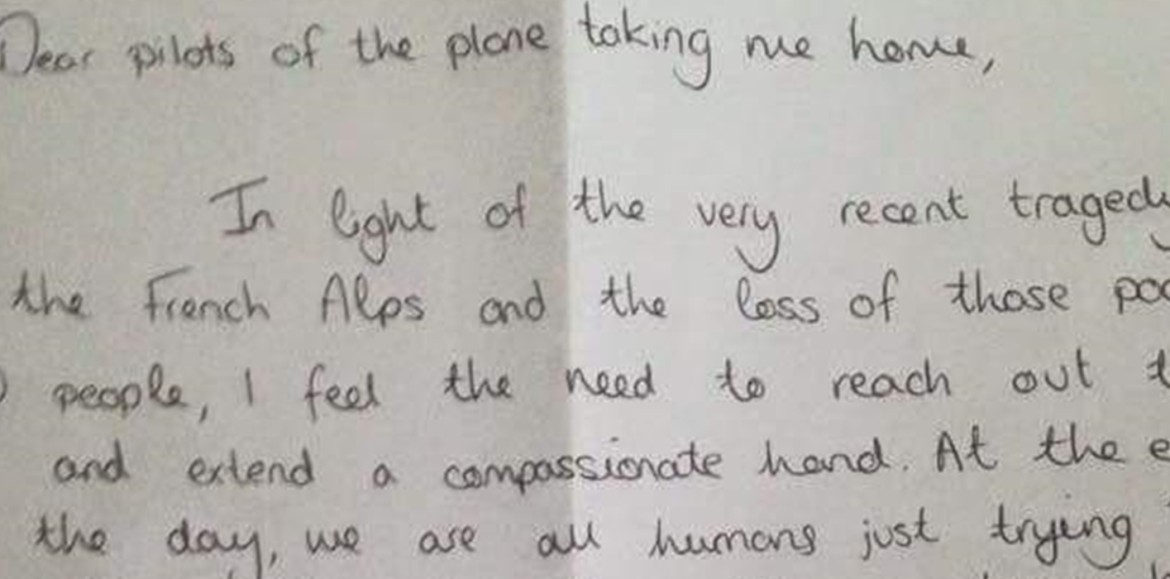 Dear pilots of the plane taking me home,
In light of the very recent
the French Alps and the loss of those
people, I feel the need to reach out
and extend a compassionate hand. At the
the day, we are all humans just trying